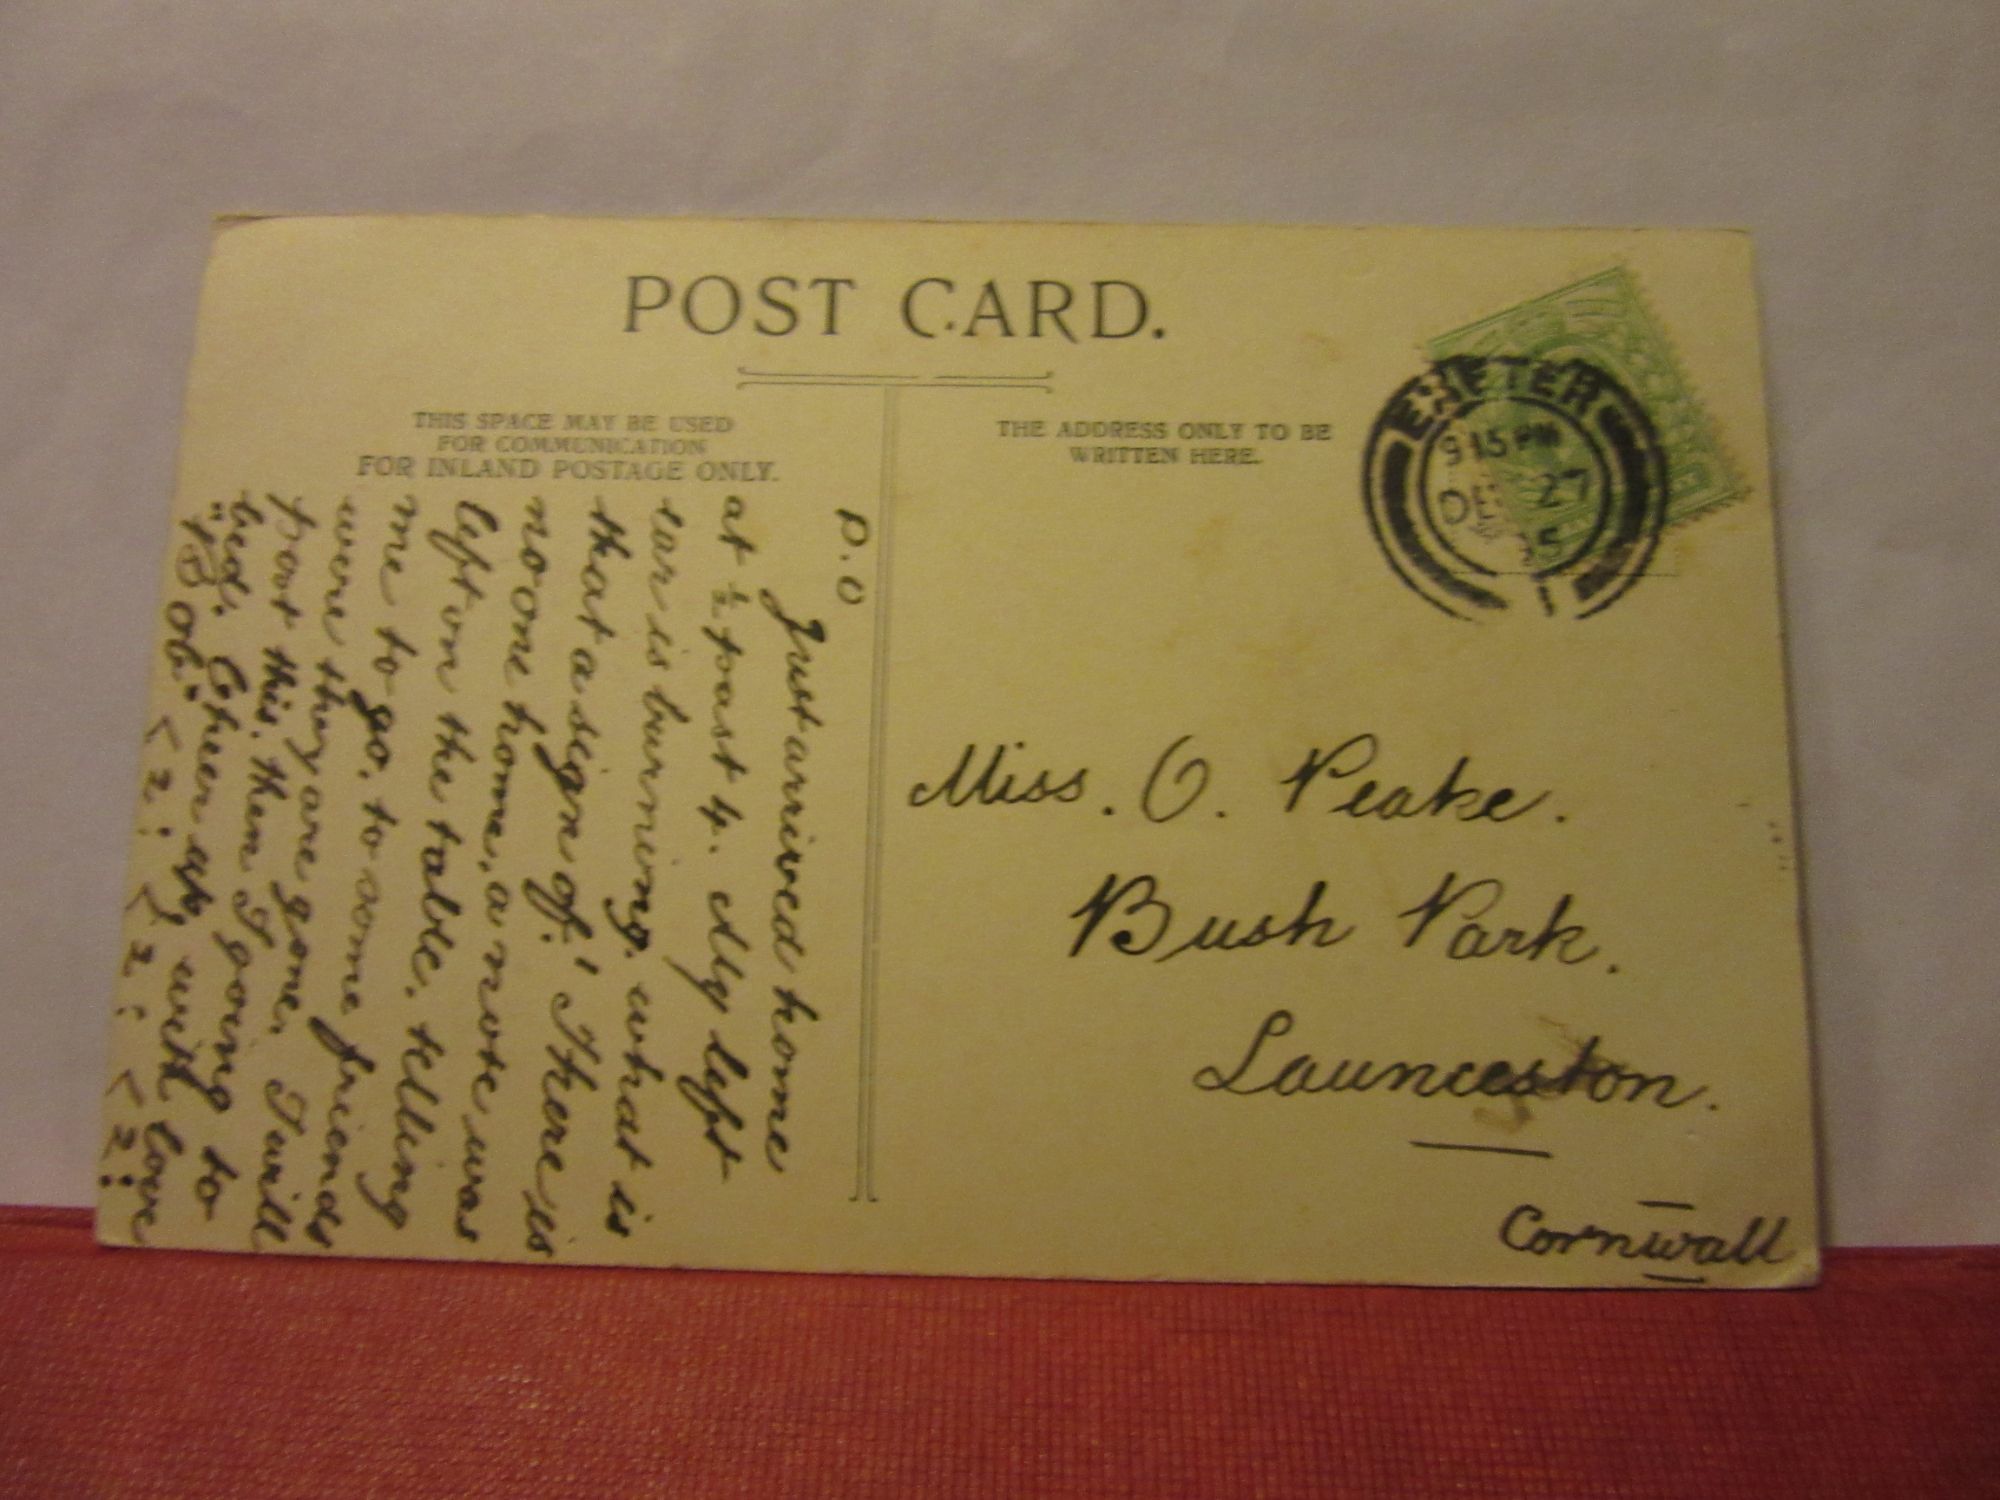 POST CARD.
THIS SPACE MAY BE USED
FOR COMMUNICATION
FOR INLAND POSTAGE ONLY.
THE ADDRESS ONLY TO BE
WRITTEN HERE.
EXETER
9 15 PM
DE 27
5
P.O
Just arrived home
at ½ past 4. My left
ear is burning. what is
that a sign of! There is
no one home, a note was
left on the table. telling
me to go. to some friends
were they are gone. I will
post this. then I going to
bed. Cheer up, with love
"Bob."
Miss. O. Peake.
Bush Park.
Launceston.
Cornwall